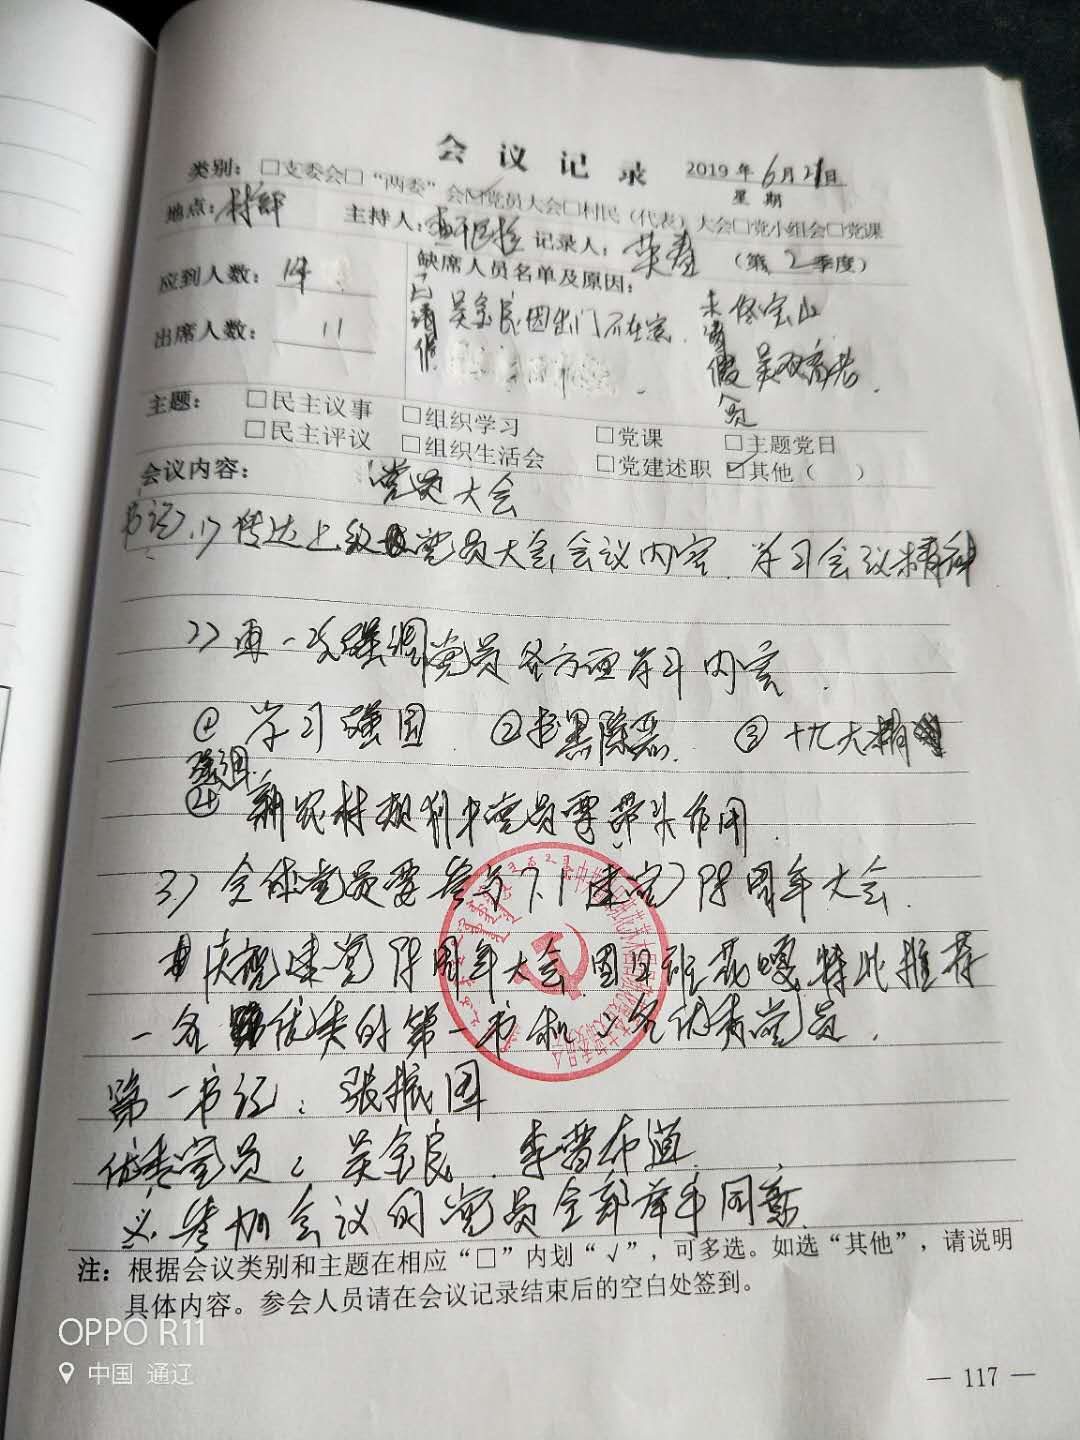 会议记录 2019年6月21日
星期
类别：□支委会□“两委”会☑党员大会□村民（代表）大会□党小组会□党课
地点：村部 主持人： 记录人：荣春 （第2季度）
应到人数：14 缺席人员名单及原因：
已请假 吴金良因出门不在家. 未请假人员 佟宝山
出席人数：11 吴双高娃.
主题： □民主议事 □组织学习 □党课 □主题党日
□民主评议 □组织生活会 □党建述职 ☑其他（ ）
会议内容： 党员大会
书记：1）传达上级党员大会会议内容、学习会议精神
2）再一次强调党员各方面学习内容.
① 学习强国 ②扫黑除恶 ③十九大精神
强调
④ 新农村规划中党员要带头作用.
3）全体党员要参与7.1建党98周年大会.
庆祝建党98周年大会，因此班花嘎特此推荐
一名优秀的第一书机 二名优秀党员.
第一书记：张振国
优秀党员：吴金良、李普布道
参加会议的党员全部举手同意.
注：根据会议类别和主题在相应“□”内划“√”，可多选。如选“其他”，请说明
具体内容。参会人员请在会议记录结束后的空白处签到。
OPPO R11
中国 通辽
— 117 —